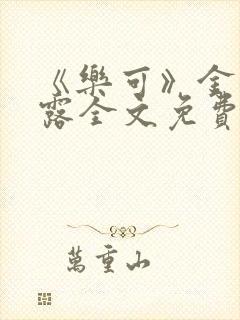 《樂可》金
露全文免費
萬重山